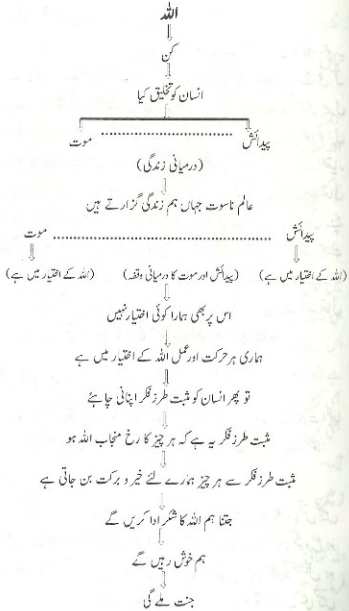 اللہ
کن
انسان کو تخلیق کیا
پیدائش موت
(درمیانی زندگی)
عالم ناسوت جہاں ہم زندگی گزارتے ہیں
پیدائش موت
(اللہ کے اختیار میں ہے) (پیدائش اور موت کا درمیانی وقفہ) (اللہ کے اختیار میں ہے)
اس پر بھی ہمارا کوئی اختیار نہیں
ہماری ہر حرکت اور عمل اللہ کے اختیار میں ہے
تو پھر انسان کو مثبت طرز فکر اپنانی چاہئے
مثبت طرز فکر یہ ہے کہ ہر چیز کا رخ منجاب اللہ ہو
مثبت طرز فکر سے ہر چیز ہمارے لئے خیر و برکت بن جاتی ہے
جتنا ہم اللہ کا شکر ادا کریں گے
ہم خوش رہیں گے
جنت ملے گی